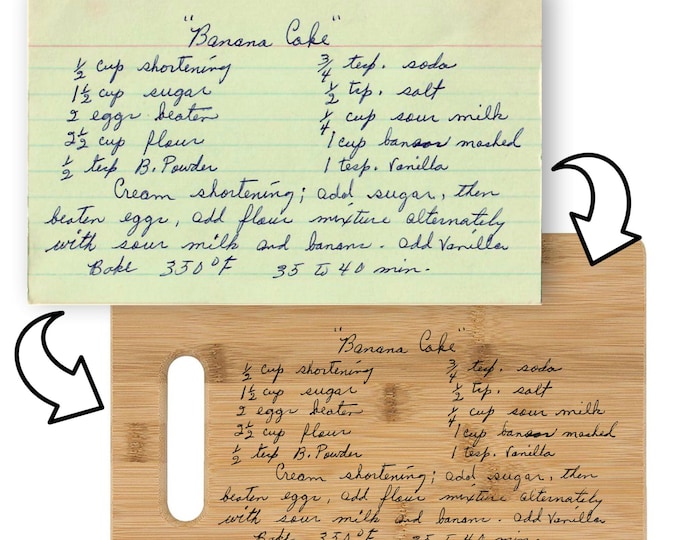 "Banana Cake"
½ cup shortening ¾ tesp. soda
1½ cup sugar ½ tsp. salt
2 eggs beaten ¼ cup sour milk
2½ cup flour 1 cup banana mashed
½ tesp B. Powder 1 tesp. Vanilla
Cream shortening; add sugar, then
beaten eggs, add flour mixture alternately
with sour milk and banana. add Vanilla
Bake 350°F 35 to 40 min.
"Banana Cake"
½ cup shortening ¾ tesp. soda
1½ cup sugar ½ tsp. salt
2 eggs beaten ¼ cup sour milk
2½ cup flour 1 cup banana mashed
½ tesp B. Powder 1 tesp. Vanilla
Cream shortening; add sugar, then
beaten eggs, add flour mixture alternately
with sour milk and banana. add Vanilla
Bake 350°F 35 to 40 min.